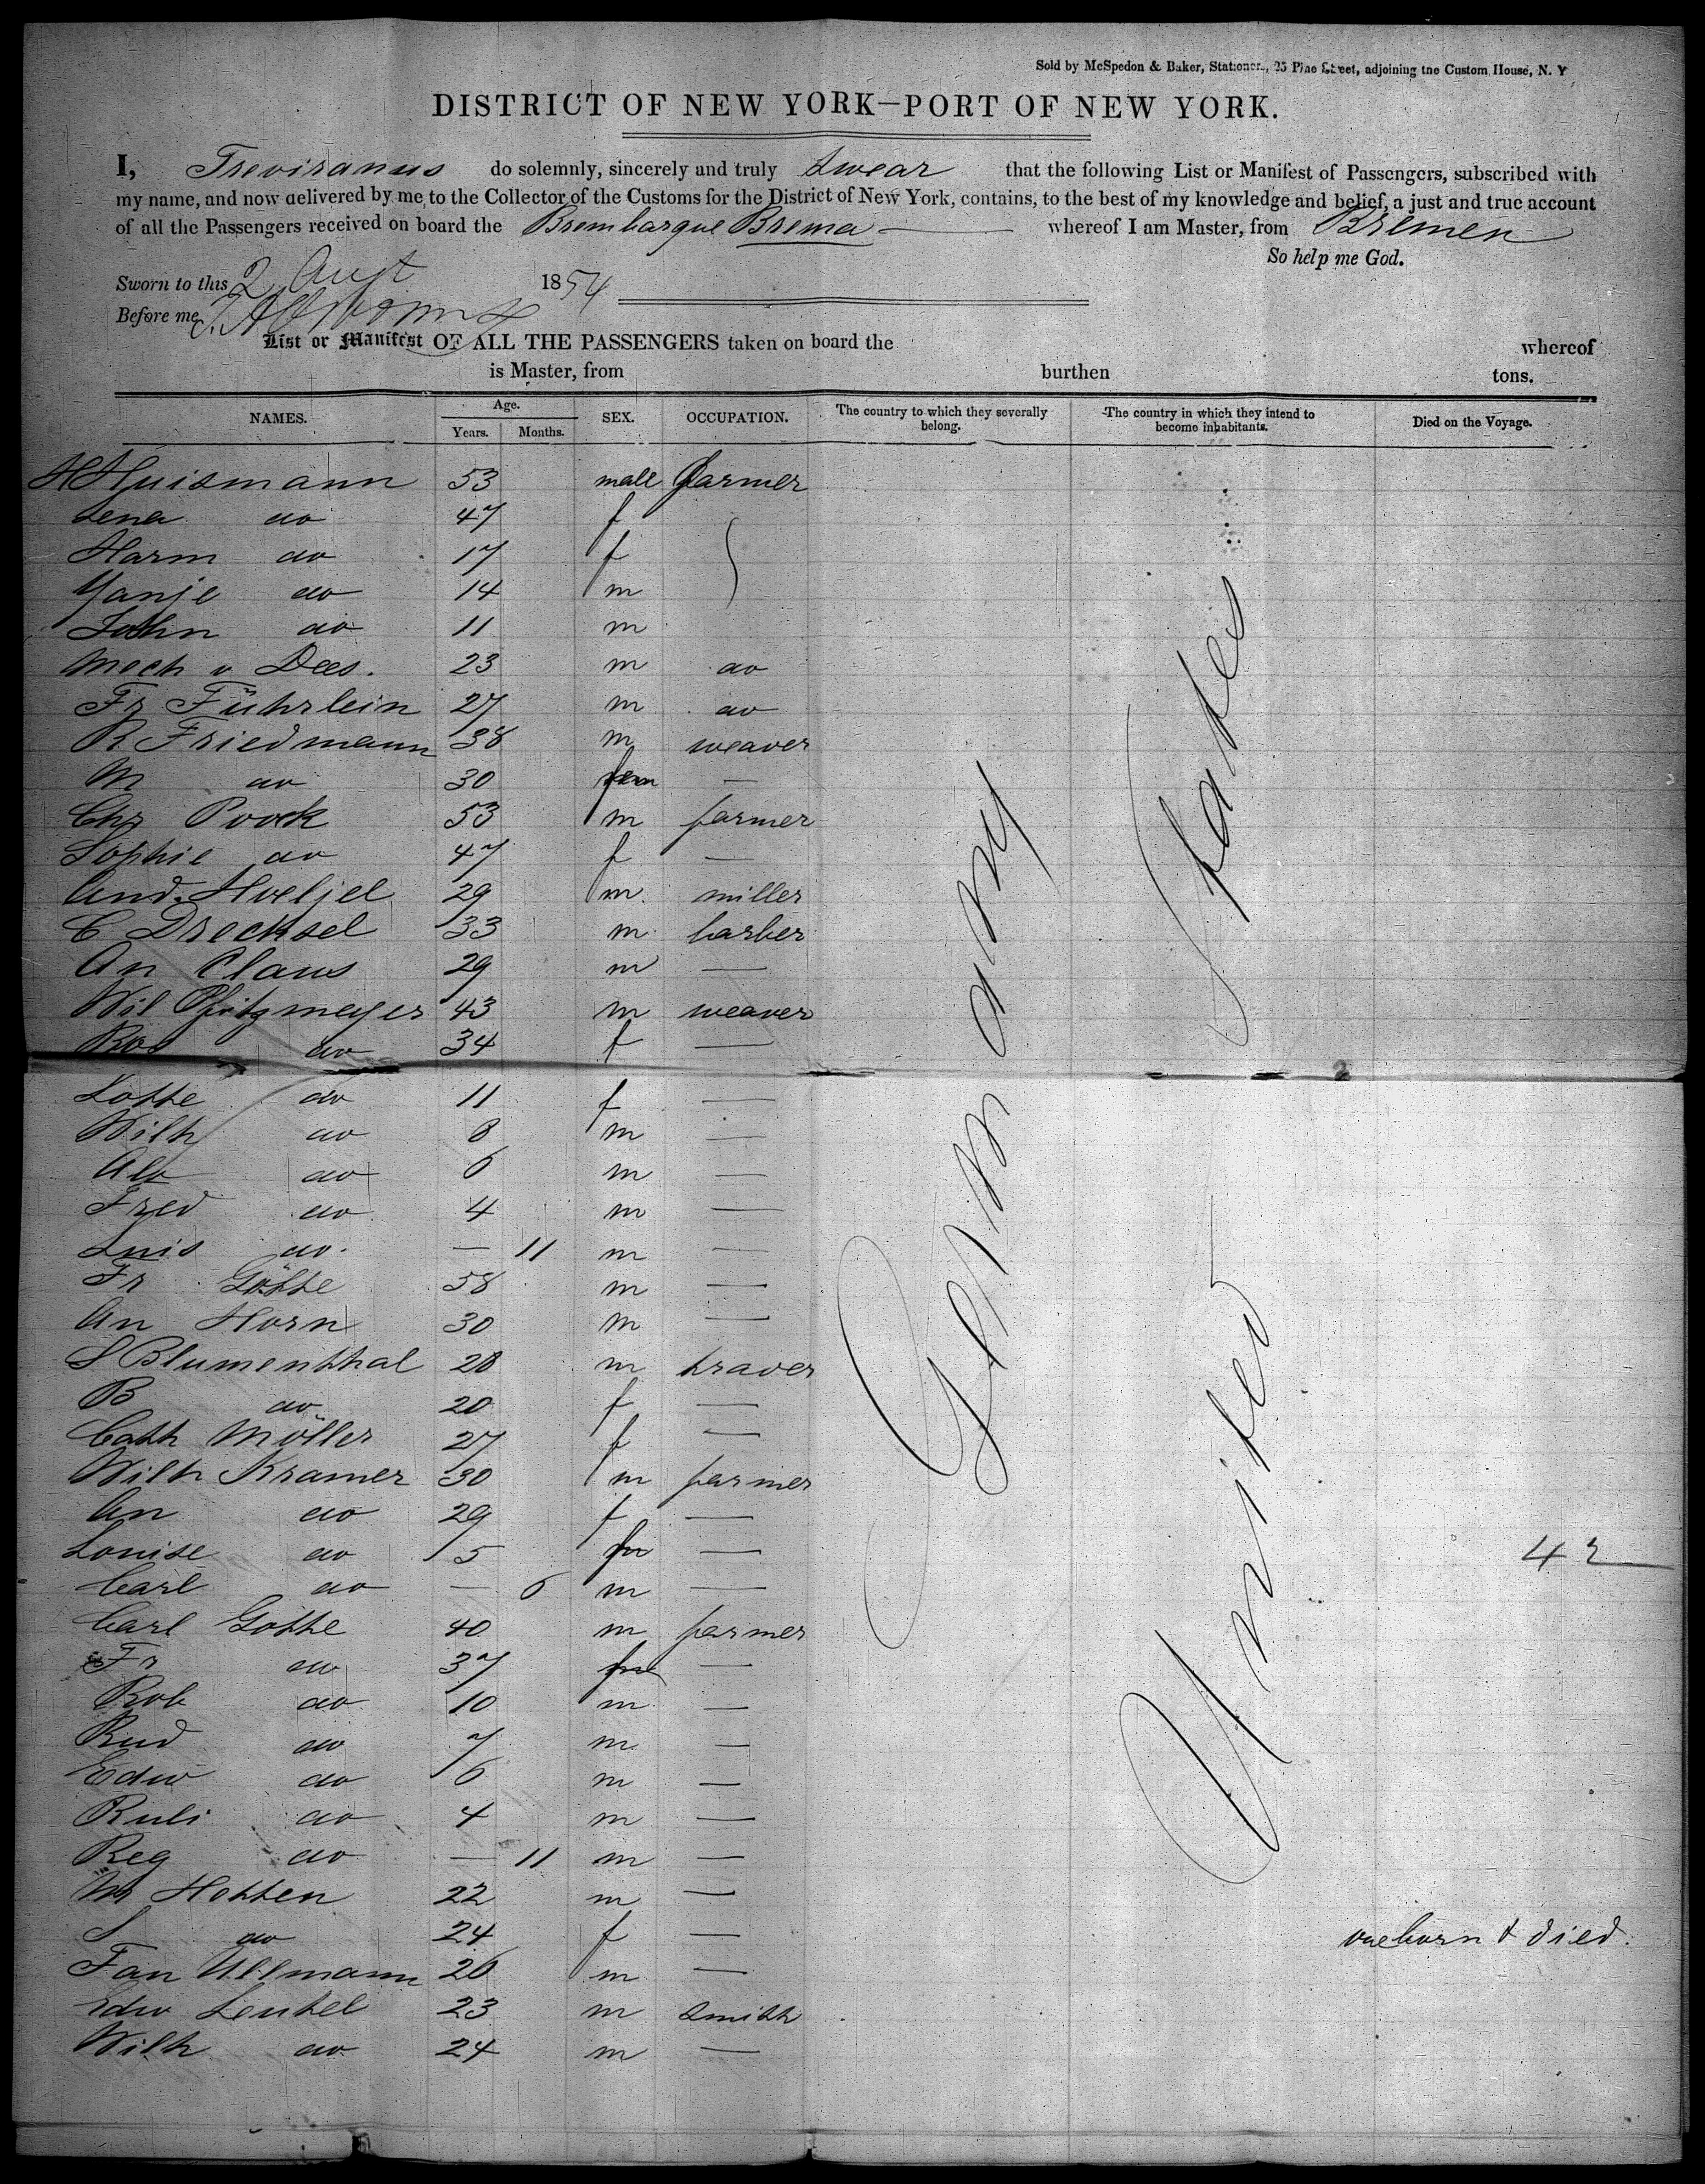 Sold by McSpedon & Baker, Stationers, 25 Pine Street, adjoining the Custom House, N. Y
DISTRICT OF NEW YORK—PORT OF NEW YORK.
I, Treviranus do solemnly, sincerely and truly swear that the following List or Manifest of Passengers, subscribed with
my name, and now delivered by me to the Collector of the Customs for the District of New York, contains, to the best of my knowledge and belief, a just and true account
of all the Passengers received on board the Brembarque Brema whereof I am Master, from Bremen
So help me God.
Sworn to this 2 Augt 1854
Before me
List or Manifest OF ALL THE PASSENGERS taken on board the whereof
is Master, from burthen tons.
NAMES. Age. Years. Months. SEX. OCCUPATION. The country to which they severally belong. The country in which they intend to become inhabitants. Died on the Voyage.
H Huismann 53 male farmer
Lena do 47 f
Harm do 17 f
Yanje do 14 m
John do 11 m
Mech v Dees. 23 m do
Fr Führlein 27 m do
R Friedmann 38 m weaver
M do 30 fem —
Chr Poock 53 m farmer
Sophie do 47 f —
And. Hoeljel 29 m. miller
C Drechsel 33 m. barber
An Claus 29 m —
Wil Pfitzmeyer 43 m weaver
Ros do 34 f —
Lotte do 11 f —
Wilh do 8 m —
Alb do 6 m —
Fred do 4 m —
Luis do. — 11 m —
Fr Götte 58 m —
An Horn 30 m —
S Blumenthal 28 m traver
B do 20 f —
Cath Möller 27 f —
Wilh Kramer 30 m farmer
An do 29 f —
Louise do 5 fm —
Carl do — 6 m —
Carl Gotte 40 m farmer
Fr do 37 fm —
Rob do 10 m —
Rud do 7 m —
Edw do 6 m —
Ruli do 4 m —
Reg do — 11 m —
M Hotten 22 m —
S do 24 f —
Fan Ullmann 26 m —
Edw Leutel 23 m smith
Wilh do 24 m —
Germany
United States
42
one born & died.